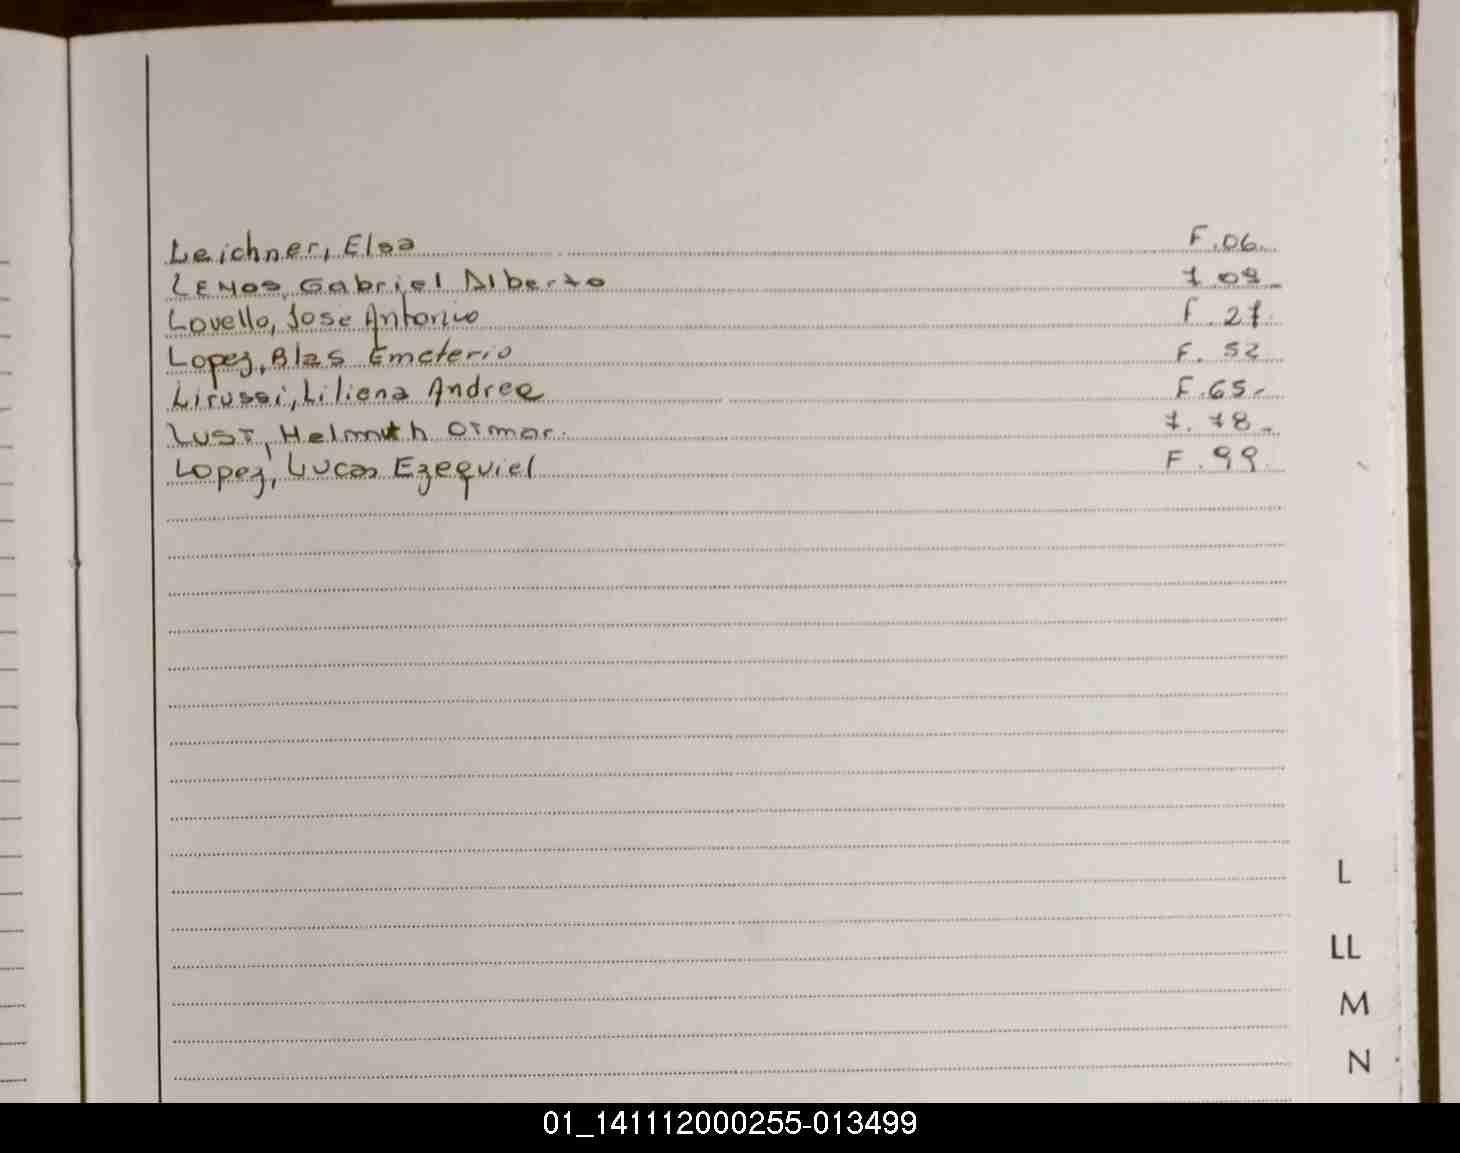 Leichner, Elsa F.06.
LEMOS, Gabriel Alberto F.08
Lovello, Jose Antonio F.27.
Lopez, Blas Emeterio F. 52
Lirussi, Liliana Andrea F.65.-
LUST, Helmuth Otmar. F. 78.-
Lopez, Lucas Ezequiel F. 99.
L
LL
M
N
01_141112000255-013499